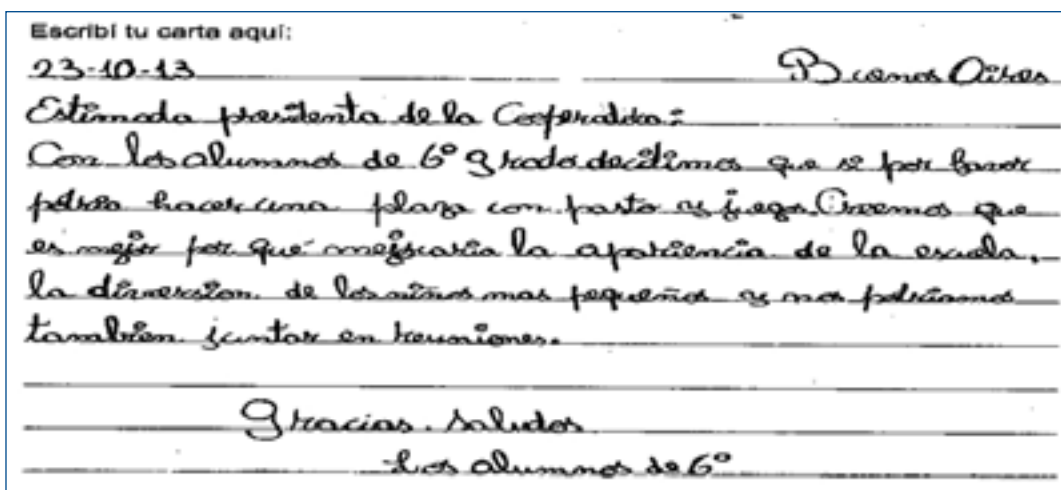 Escribí tu carta aquí:
23-10-13 Buenos Aires
Estimada presidenta de la Cooperadora:
Con los alumnos de 6º grado decidimos que si por favor
podria hacer una plaza con pasto y juegos. Creemos que
es mejor por qué mejoraria la apariencia de la escuela,
la diversion de los niños mas pequeños y nos podriamos
tambien juntar en reuniones.
Gracias. Saludos
Los alumnos de 6º